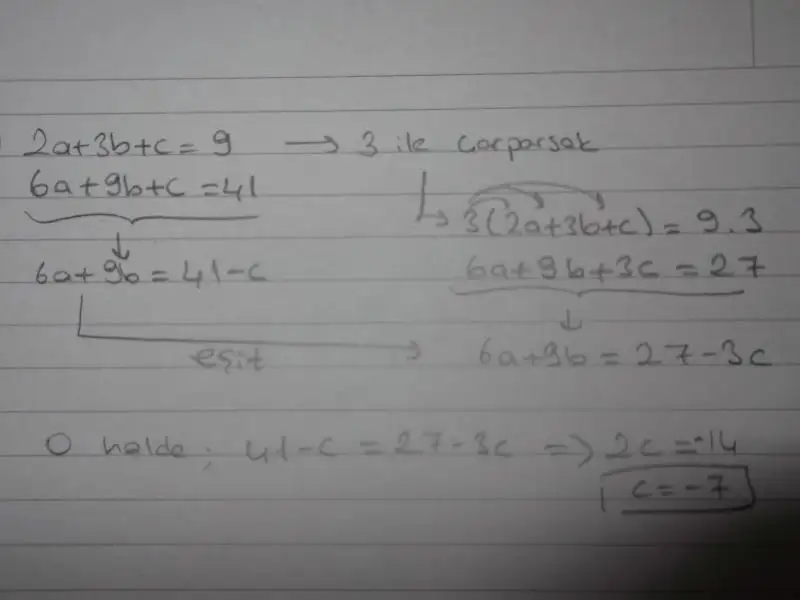 2a+3b+c=9 → 3 ile çarparsak
6a+9b+c=41
3(2a+3b+c)=9.3
6a+9b=41-c
6a+9b+3c=27
eşit
6a+9b=27-3c
O halde; 41-c=27-3c ⇒ 2c=-14
c=-7